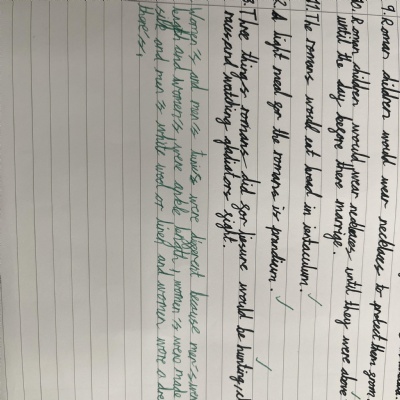 9. Roman children would wear necklaces to protect them from
10. Roman children would wear necklaces until they were above
until the day before there marrige.
11. The romans would eat bread in ientaculum.
2. A light meal for the romans is prandium.
3. Three things romans did for liesure would be hunting,
races, and watching gladiators fight.
Women's and men's tunics were different because men's were
and women's were ankle length, women's were made
silk and men's white wool or linen and women wore a dre
theres.